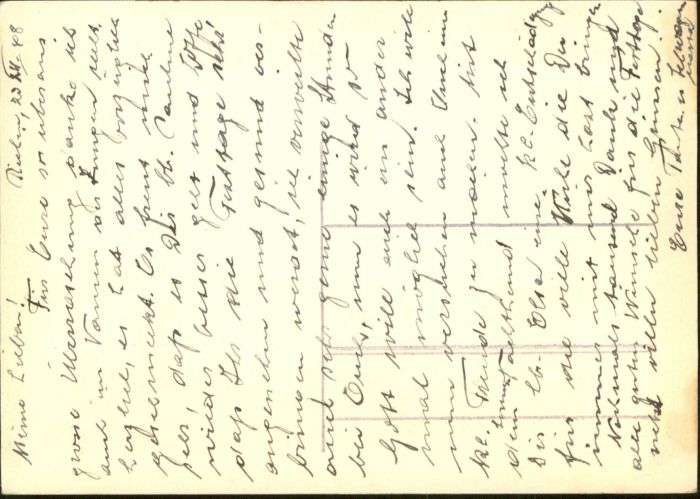 Riehen, 23.XII.48
Meine Lieben!
Für Eure so überaus
grosse Überraschung danke ich
auch im Namen der Jungen recht
herzlich, es hat alles vorzüglich
geschmeckt. Es freut mich
sehr, dass es Dir lb.
wieder besser geht und hoffe
dass Ihr die Festtage recht
angenehm und gesund ver-
bringen werdet, ich verweilte
auch sehr gerne einige Stunden
bei Euch, nun es wird so
Gott will auch ein ander
mal möglich sein. Ich will
nun versuchen auch Euch eine
kl. Freude zu machen. Mit
dem möchte ich
Dir lb. Elsa eine kl. Entschädigung
für die viele Mühe die Du
immer mit uns hast bringen
Nochmals tausend Dank und
alle guten Wünsche für die Festtage
nebst vielen lieben Grüssen.
Eure Tante u.